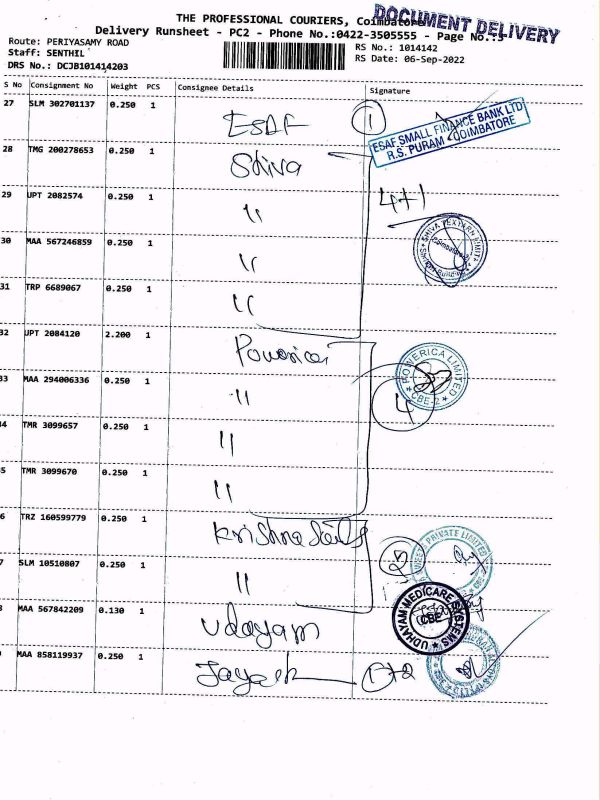 THE PROFESSIONAL COURIERS, Coimbatore
DOCUMENT DELIVERY
Delivery Runsheet - PC2 - Phone No.:0422-3505555 - Page No.:3
Route: PERIYASAMY ROAD
RS No.: 1014142
Staff: SENTHIL
RS Date: 06-Sep-2022
DRS No.: DCJB101414203
S No Consignment No Weight PCS Consignee Details Signature
27 SLM 302701137 0.250 1 ESAF 1
ESAF SMALL FINANCE BANK LTD
R.S. PURAM COIMBATORE
28 TMG 200278653 0.250 1 Shiva
29 UPT 2082574 0.250 1 "
4+1
30 MAA 567246859 0.250 1 "
31 TRP 6689067 0.250 1 "
32 UPT 2084120 2.200 1 Powerica
POWERICA LIMITED
* CBE-2 *
33 MAA 294006336 0.250 1 "
4
34 TMR 3099657 0.250 1 "
5 TMR 3099670 0.250 1 "
6 TRZ 160599779 0.250 1 Krishna
PRIVATE LIMITED
2
7 SLM 10510807 0.250 1 "
MAA 567842209 0.130 1 Udayam
UDHAYAM MEDICARE SYSTEMS
CBE
MAA 858119937 0.250 1 Jayesh